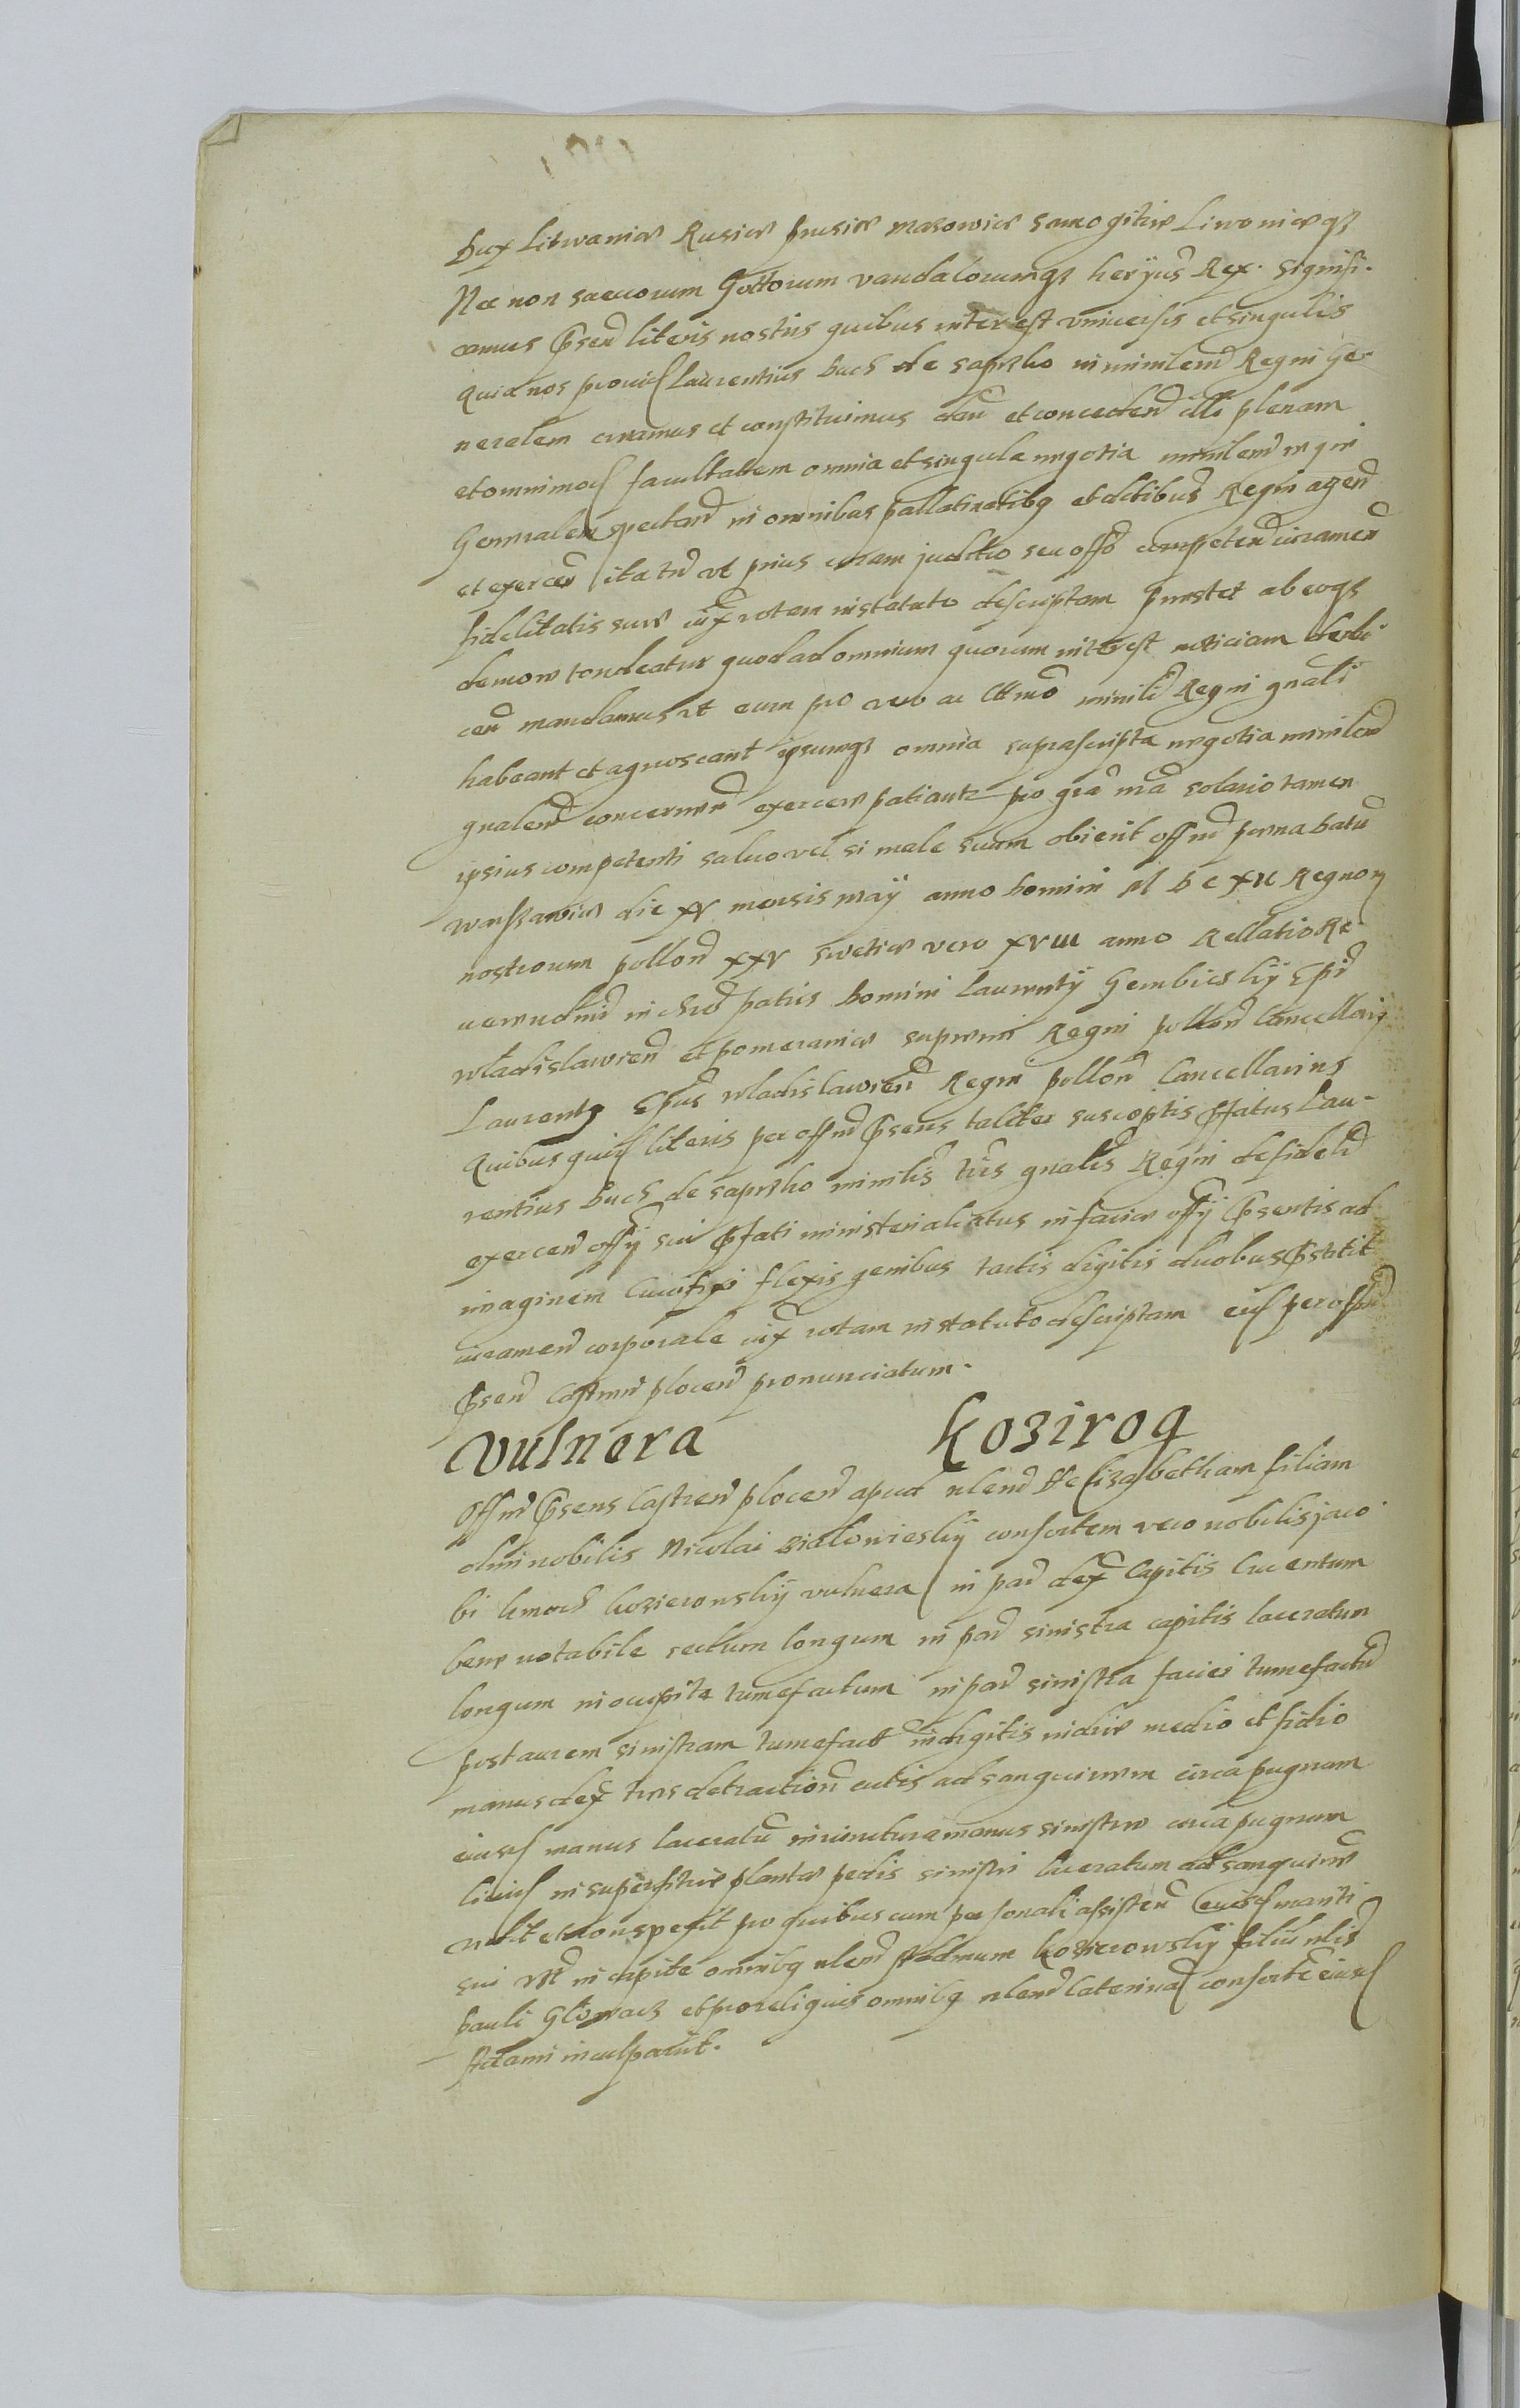 Dux Litwaniae Rusiae prusiae masowiae samogitiae Liwoniaeqз
Nec non Saecorum Gottorum vandalorumqз herijus Rex. Signifi-
camus psen literis nostris quibus interest vniuersis et singulis
Quia nos prouid Laurentius buch de saprko in minlem Regni Ge-
neralem creamus et constituimus dan et conceden illi plenam
et omnimod facultatem omnia et singula negotia minlem regni
Generalem spectan in omnibus pallatinatibq et ditibus Regni agen
et exercen ita tn vt prius coram juditio seu offo competen iuramen
fidelitatis suae iux rotam in statuto descriptam praestet ab eoqз
demon tondeatur quod ad omnium quorum interest noticiam dedu-
cen mandamus vt eum pro vero ac lttmo minili Regni gnali
habeant et agnoscant ipsumqз omnia suprascripta negotia minlem
gnalem concernen exercere patiantr pro gra nra solario tamen
ipsius competenti saluo vel si male suum obierit offm poena datu
warszawiae die xv mensis maij anno Domini M D C XII Regnorz
nostrorum pollon xxv swetiae vero xviii anno Rellatio Re-
uerendmi in chro patris Domini Laurentij Gembiczkij Epi
wladislawien et pomeraniae supremi Regni pollon Cancellarij
Laurents Epus wladislawien Regni pollon Cancellarius
Quibus quid literis per offm psens taliter susceptis pfatus Lau-
rentius buch de saprko minilis tris gnalis Regni de fideli
exercen offij sui pfati ministerialiatus in facie offij psentis ad
imaginem Crucifixi flexis genibus tactis digitis duobus pstitit
iuramen corporale iux rotam in statuto descriptam eid per offm
psen Castren plocen pronunciatum.
Vulnera Kozirog
Offm psens Castren plocen apud nlem He Elizabetham filiam
olim nobilis Nicolai Bialowieskij consortem vero nobilis jaco-
bi kmoch kozierowskij vulnera in par dex Capitis Cruentum
bene notabile sectum longum in par sinistra capitis laceratum
longum in occipite tumefactum in par sinistra faciei tumefactu
post aurem sinistram tumefact in digitis indice medio et fidio
manus dex tres detraction cutis ad sanguinem circa pugnum
eiusd manus laceratu in iunctura manus sinistrae circa pugnum
liuid in superfitie plantae pedis sinistri laceratum ad sanguine
vidit et conspexit pro quibus cum personali assisten eiusd mariti
sui vt in capite omnibq nlem kozierowskij filiu nlis
pauli Glowacz et pro reliquis omnibq nlem Caterina consorte eiusd
 inculparut.